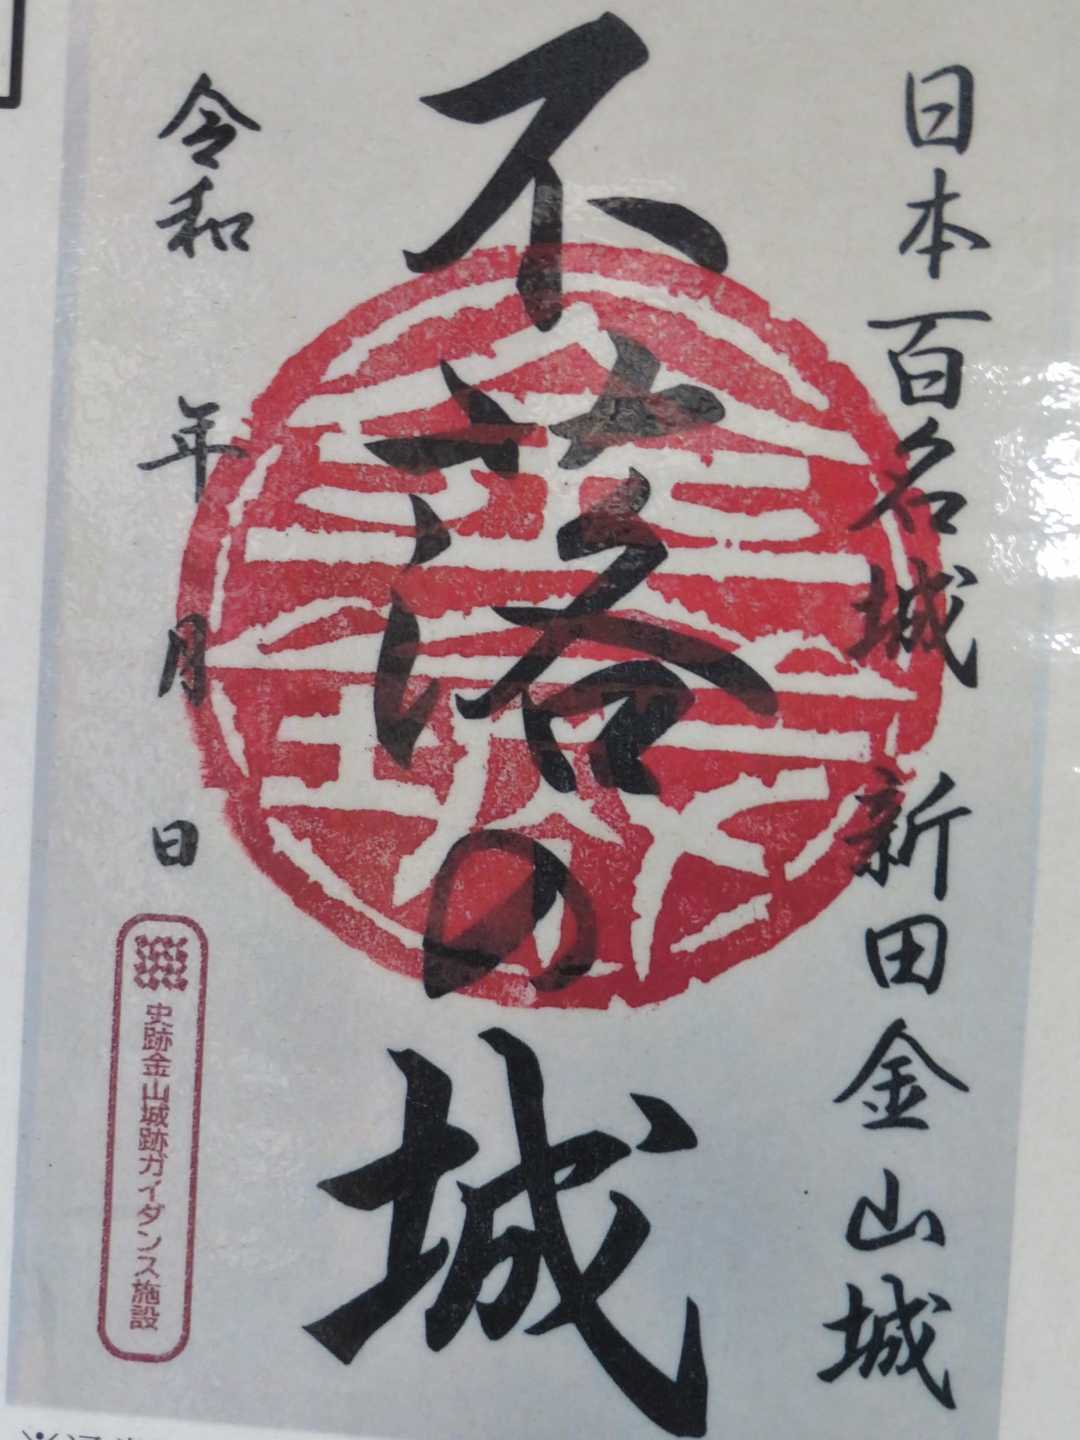 日本百名城 新田金山城
不落の城
令和 年 月 日
史跡金山城跡ガイダンス施設